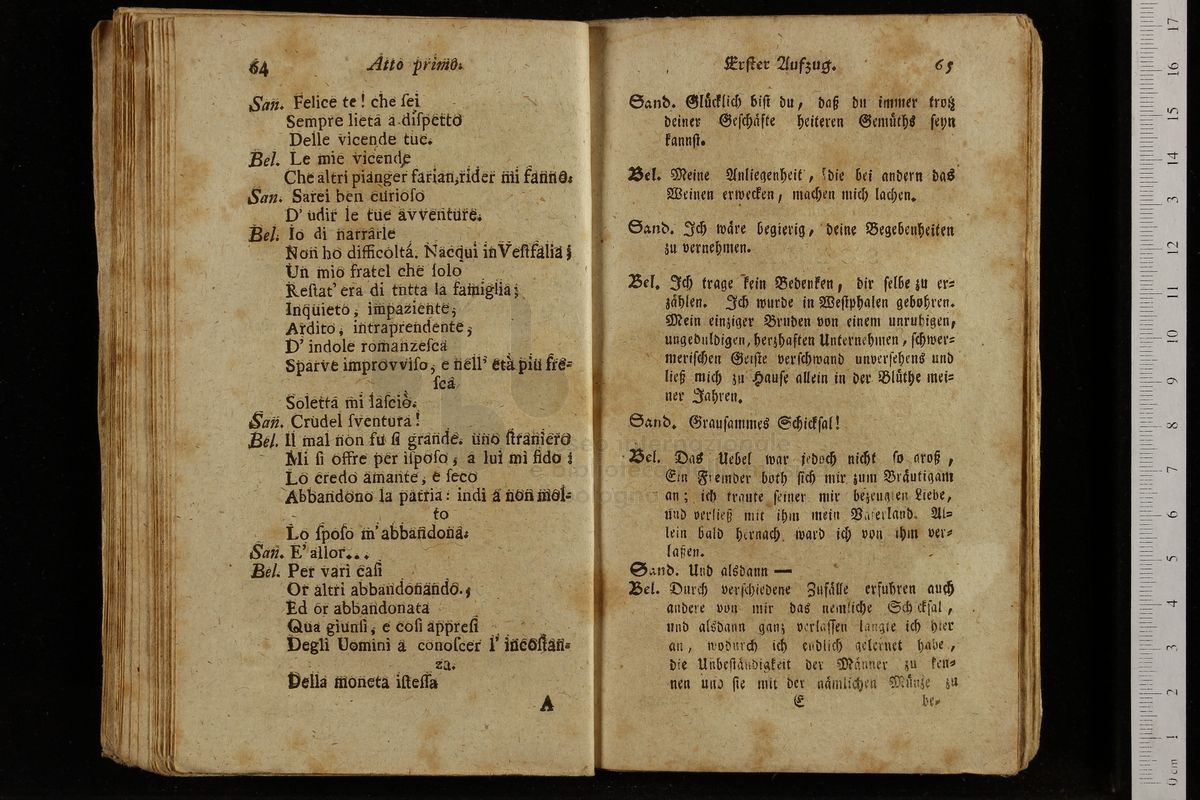 64 Atto primo.
San. Felice te! che ſei
Sempre lieta a diſpetto
Delle vicende tue.
Bel. Le mie vicende
Che altri pianger farian, rider mi fanno.
San. Sarei ben curioſo
D' udir le tue avventure.
Bel. Io di narrarle
Non ho difficoltà. Nacqui in Veſtfalia;
Un mio fratel che ſolo
Reſtat' era di tntta la famiglia;
Inquieto, impaziente,
Ardito, intraprendente,
D' indole romanzeſca
Sparve improvviſo, e nell' età più fre-
ſca
Soletta mi laſciò.
San. Crudel ſventura!
Bel. Il mal non fu ſi grande. uno ſtraniero
Mi ſi offre per iſpoſo, a lui mi fido:
Lo credo amante, e ſeco
Abbandono la patria: indi a non mol-
to
Lo ſpoſo m' abbandona.
San. E' allor...
Bel. Per vari caſi
Or altri abbandonando.,
Ed or abbandonata
Qua giunſi, e coſi appreſi
Degli Uomini a conoſcer l' incoſtan-
za.
Della moneta iſteſſa
A
Erſter Aufzug. 65
Sand. Glücklich biſt du, daß du immer trotz
deiner Geſchäfte heiteren Gemüths ſeyn
kannſt.
Bel. Meine Anliegenheit, die bei andern das
Weinen erwecken, machen mich lachen.
Sand. Ich wäre begierig, deine Begebenheiten
zu vernehmen.
Bel. Ich trage kein Bedenken, dir ſelbe zu er-
zählen. Ich wurde in Weſtphalen gebohren.
Mein einziger Bruden von einem unruhigen,
ungeduldigen, herzhaften Unternehmen, ſchwer-
meriſchen Geiſte verſchwand unverſehens und
ließ mich zu Hauſe allein in der Blüthe mei-
ner Jahren.
Sand. Grauſammes Schickſal!
Bel. Das Uebel war jedoch nicht ſo groß,
Ein Fremder both ſich mir zum Bräutigam
an; ich traute ſeiner mir bezeugten Liebe,
und verließ mit ihm mein Vaterland. Al-
lein bald hernach ward ich von ihm ver-
laßen.
Sand. Und alsdann —
Bel. Durch verſchiedene Zufälle erfuhren auch
andere von mir das nemliche Schickſal,
und alsdann ganz verlaſſen langte ich hier
an, wodurch ich endlich gelernet habe,
die Unbeſtändigkeit der Männer zu ken-
nen und ſie mit der nämlichen Münze zu
E be-